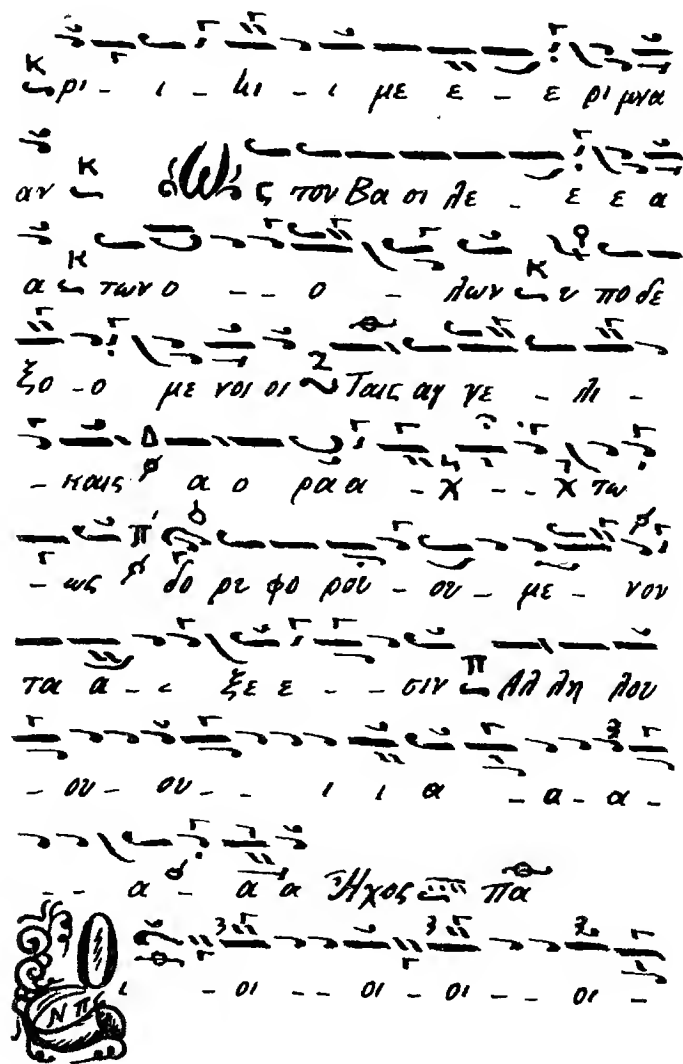 ρι - ι - κι - ι με ε - ε ρι μνα
αν Ὡς τον Βα σι λε - ε ε α
α των ο - - ο - λων υ πο δε
ξο - ο με νοι οι Ταις αγ γε - λι -
- καις α ο ρα α - χ - - χ τω
- ως δο ρυ φο ρου - ου - με - νον
τα α - ξε ε - - σιν Αλ λη λου
- ου - ου - - ι ι α - α - α -
- - α - α α Ἦχος πα
ι - οι - - οι - οι - - οι -